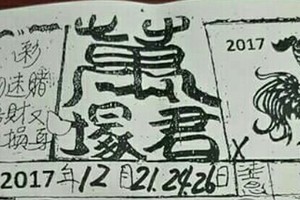 彩
迷賭
財又
損身
萧君塚
2017
X
2017年12月21.24.26日